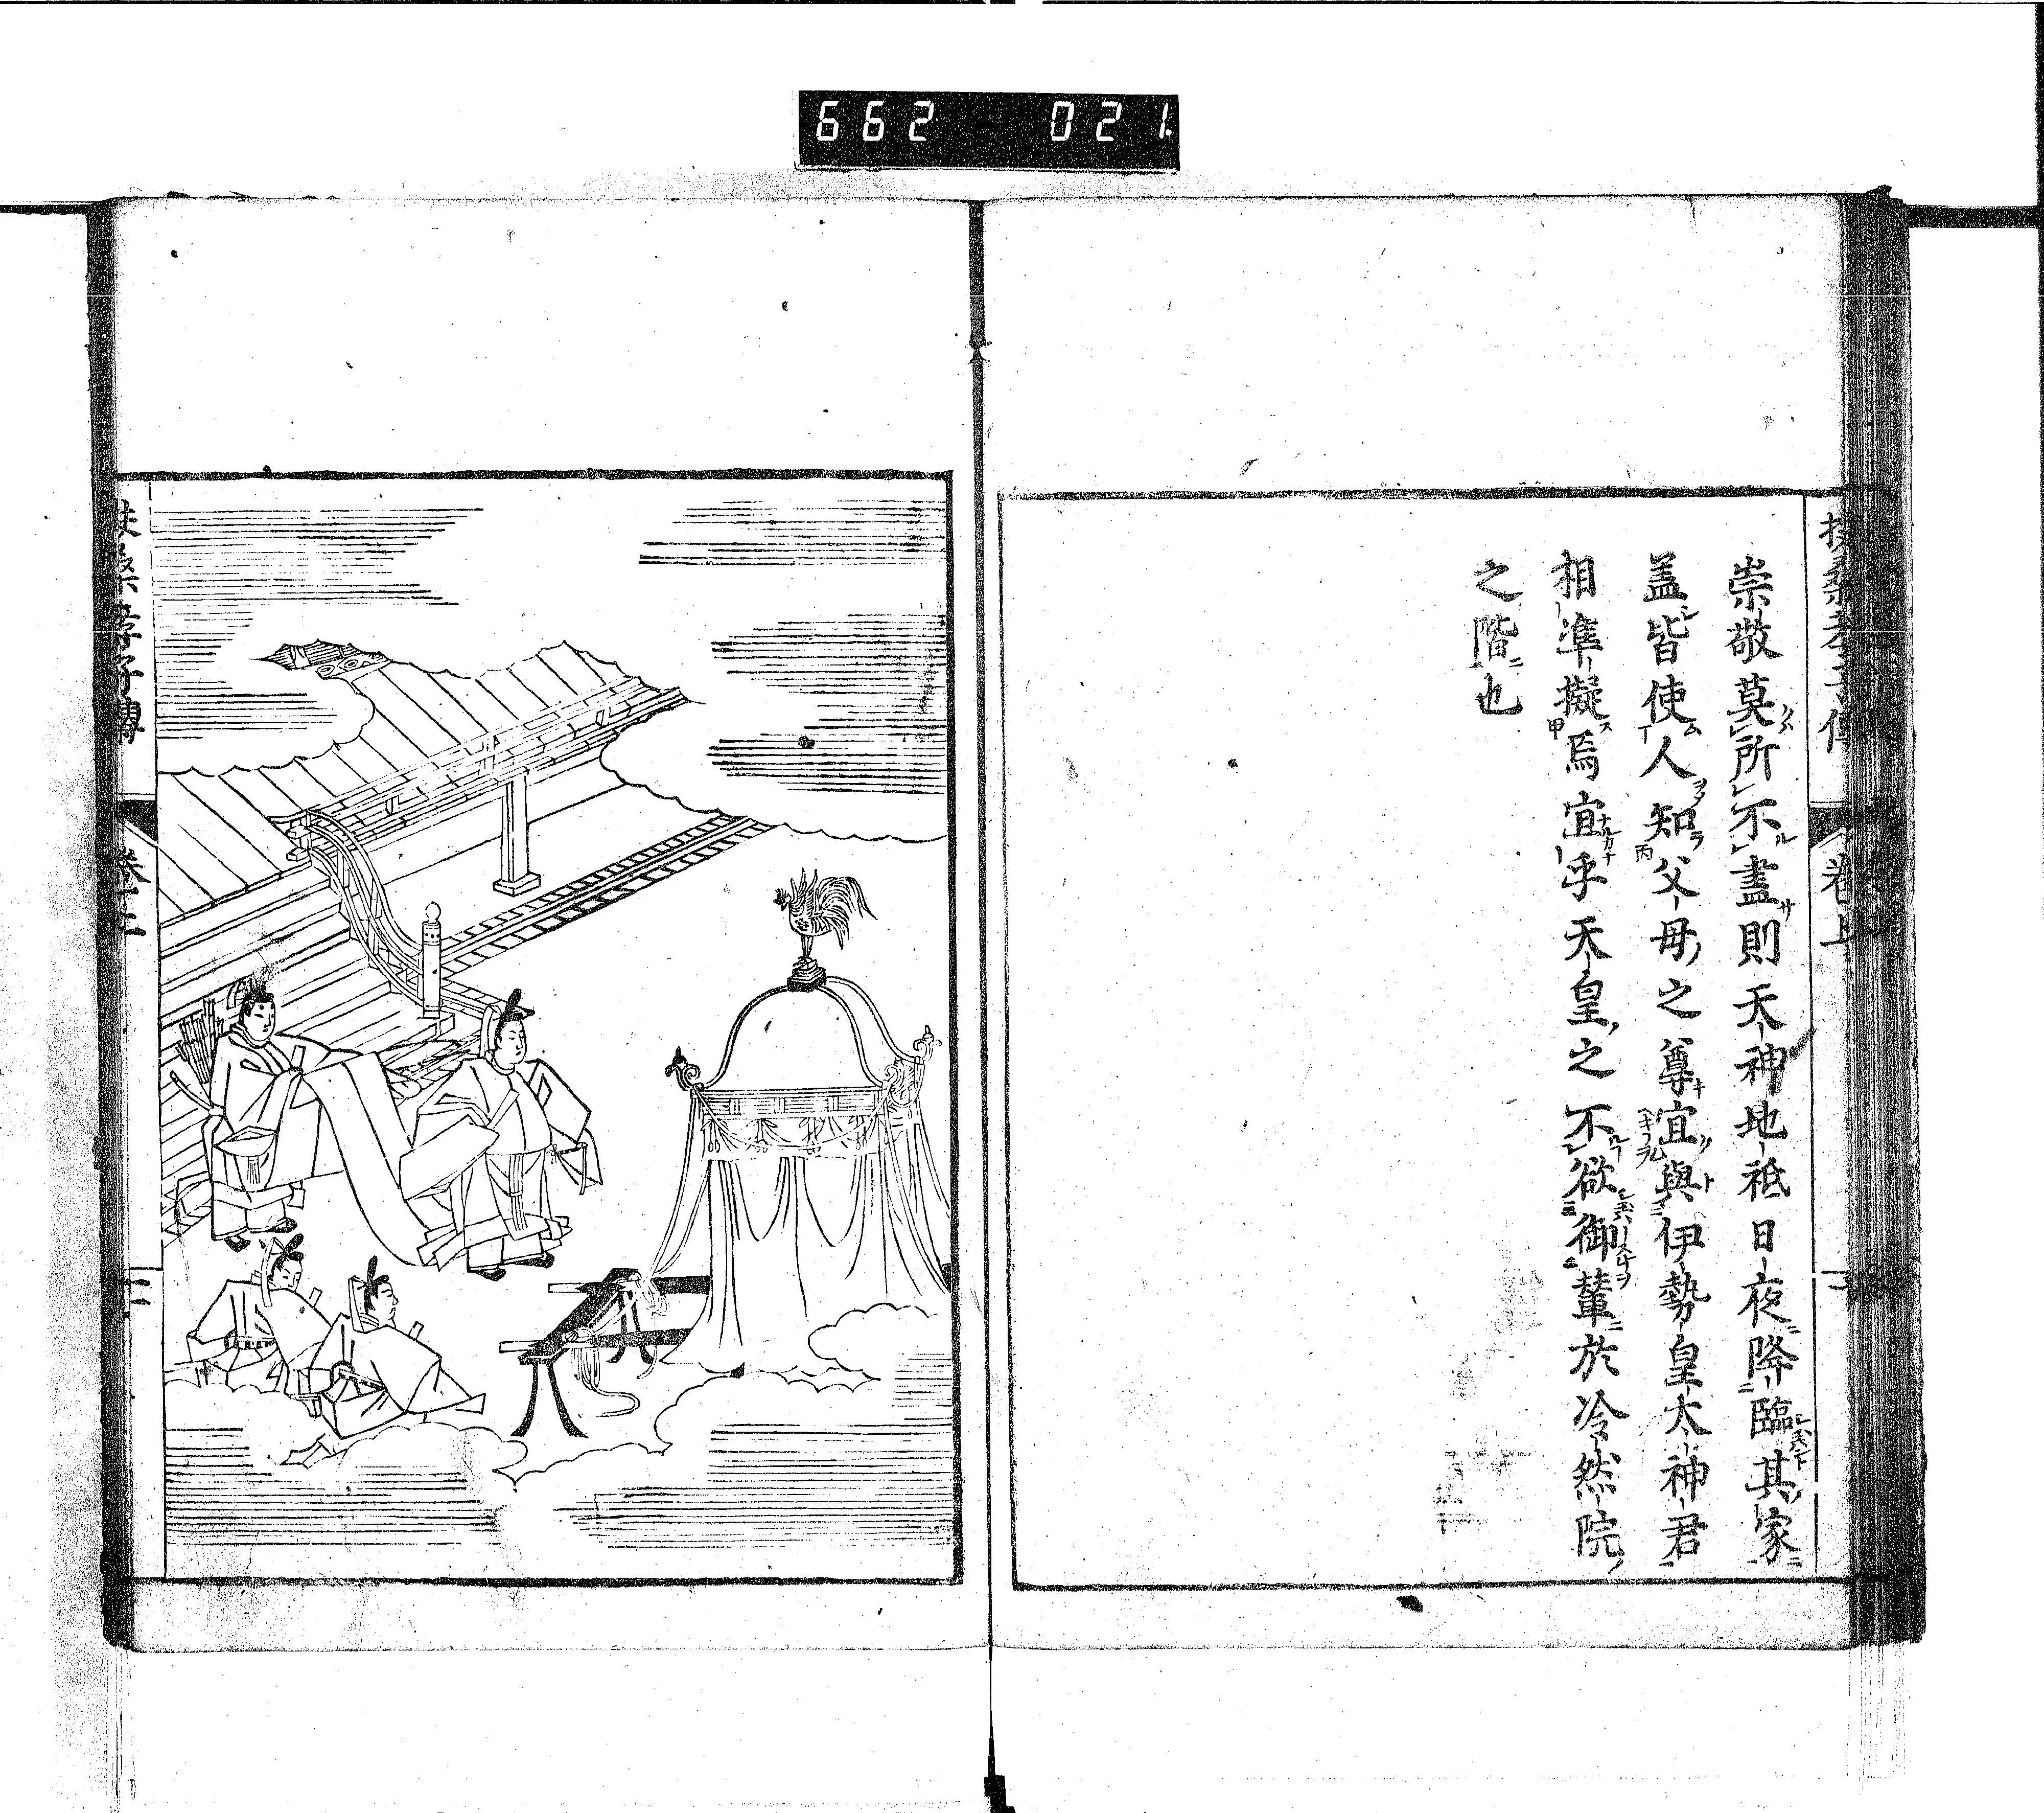 662 021
扶桑孝子傳 卷上
崇敬莫所不盡則天神地祇日夜降臨其家
盖皆使人知父母之尊宜與伊勢皇太神君
相準擬焉宜乎天皇之不欲御輦於冷然院
之階也
扶桑孝子傳 卷上